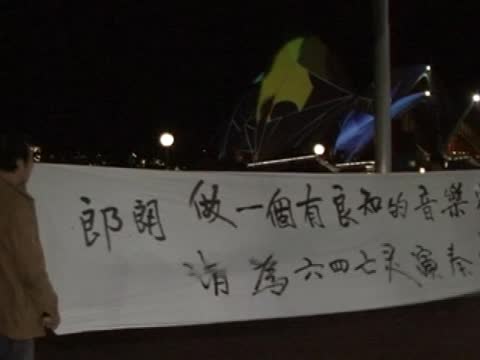 郎朗 做一個有良知的音樂
請為六四七灵演奏